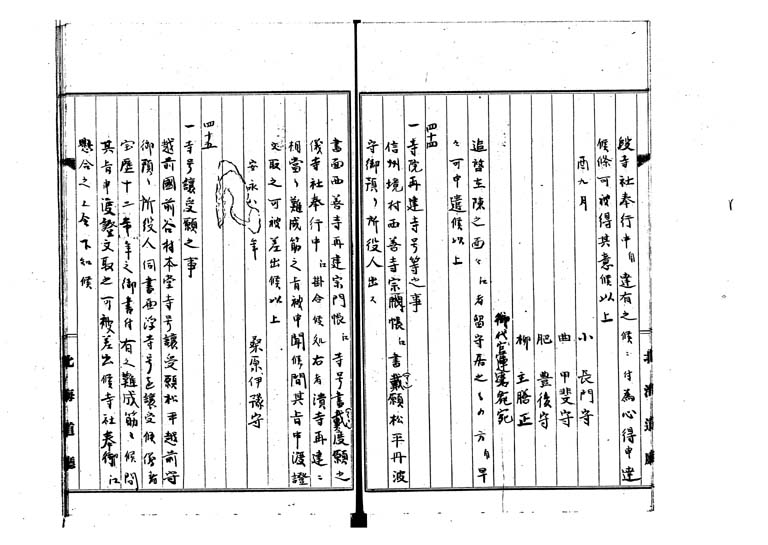 段寺社奉行中ゟ達有之候ニ付為心得申達
候條可被得其意候以上
酉九月
小長門守
曲甲斐守
肥豊後守
柳主膳正
御代官宛
追啓在陳之面々江者留守居之々ゟ方ゟ早
々可申遣候以上
四十四
一寺院再建寺号等之事
信州境村西善寺宗門帳江書戴願松平丹波
守御預り所役人出ス
書面西善寺再建宗門帳江寺号書戴度願之
儀寺社奉行中江掛合候処右者潰寺再建ニ
相當り難成筋之旨被申聞候間其旨申渡證
文取之可被差出候以上
安永八年
桑原伊豫守
四十五
一寺号譲受願之事
越前國前谷村本堂寺号譲受願松平越前守
御預り所役人伺書西浄寺号を譲受候儀者
宝暦十二午年之御書付有之難成筋ニ候間
其旨申渡證文取之可被差出候寺社奉行江
懸合之上令下知候
北海道廳
北海道廳